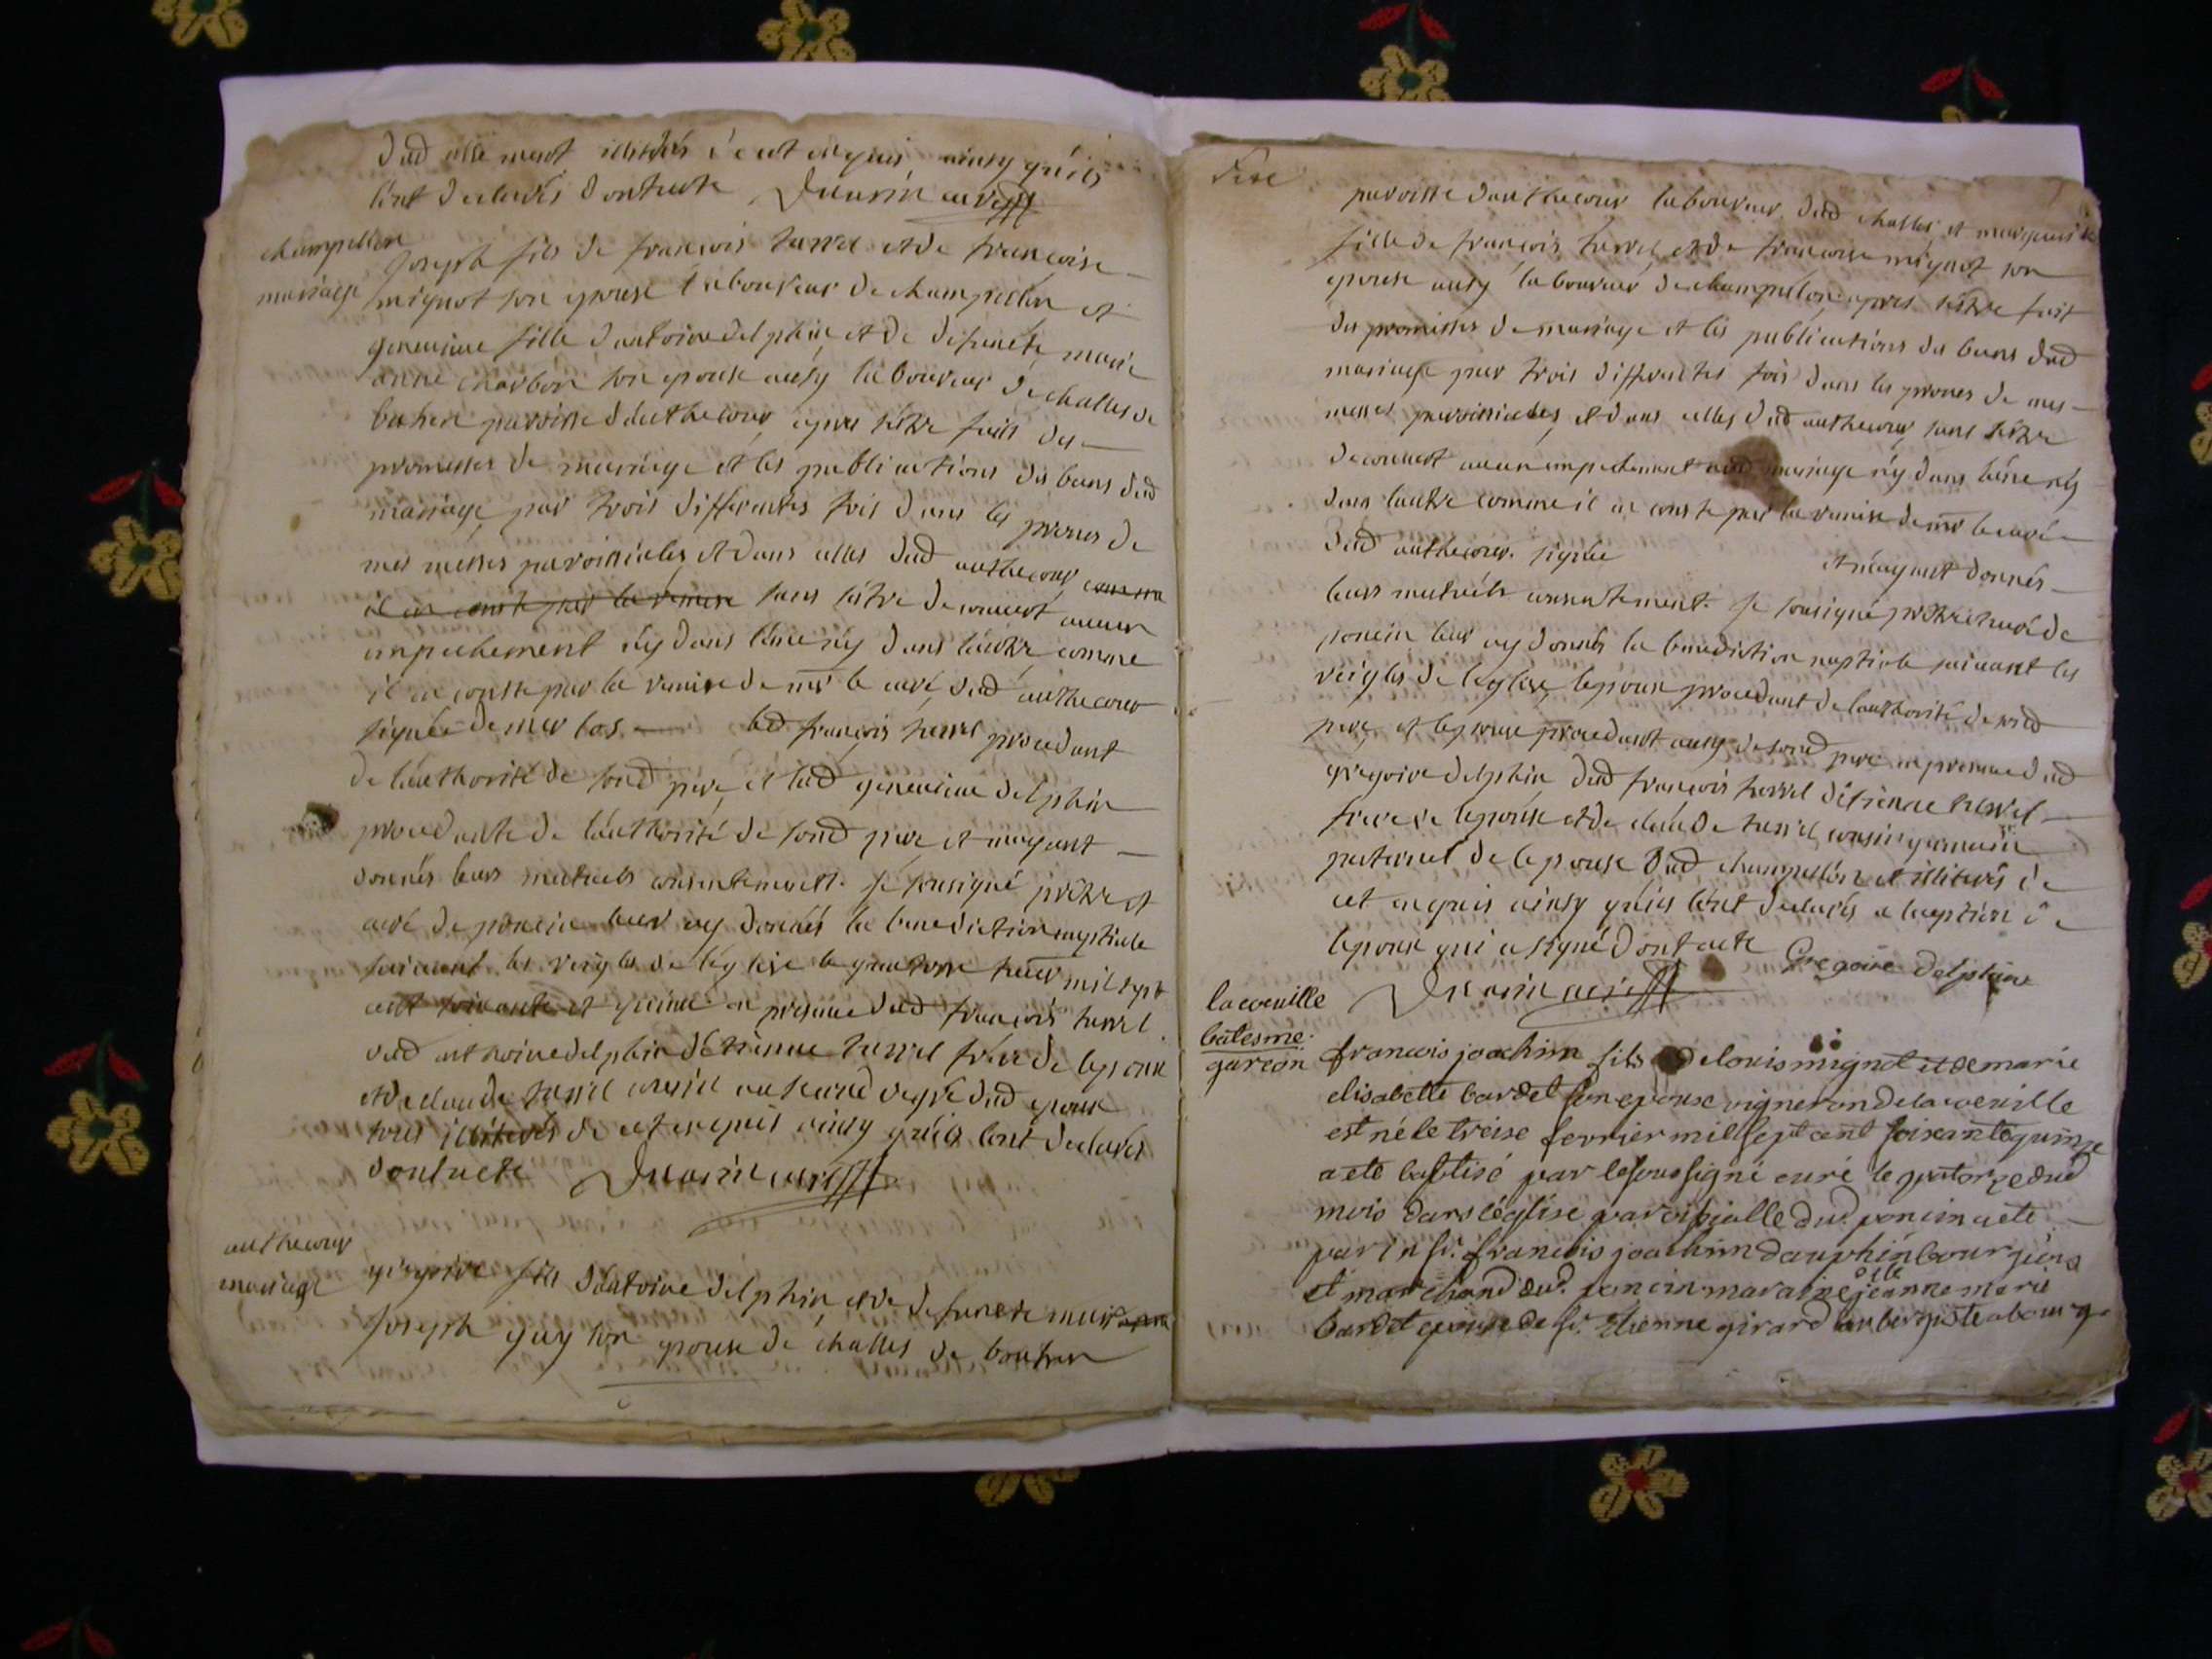 l'ont declarés dontacte
champellon
mariage
Joseph fils de françois tarrel et de françoise
mignot son epouse laboureur de champellon et
genevieve fille d'antoine delphin et de defuncte marie
anne charbon son epouse ausy laboureur de challes de
bohen paroisse d'authecour apres s'êtré faits des
promesses de mariage et les publications des bans dud
mariage par trois differentes fois dans les prones de
mes messes paroissiales et dans celles dud authecour
il en conste par la remise sans s'être decouvert aucun
empechement n'y dans l'une n'y dans l'autre comme
il en conste par la remise de mr le curé dud authecour
signée led françois tarrel procedant
de l'authorité de sond pere et lad genevieve delphin
procedante de l'authorité de sond pere et m'ayant
donnés leurs mutuels consentements je sousigné prêtre et
curé de poncin leur ay donnés la benediction nuptiale
suivant les reigles de l'eglise le mil sept
cent soixante et quinze en presence dud françois tarrel
dud anthoine delphin d'étienne tarrel frère de lepoux
et de claude tarrel cousin au second degré dud epoux
tous illiterés de ce enquis ainsy qu'ils l'ont declarés
dontacte
authecour
mariage
gregoire fils d'antoine delphin et de defuncte marie
Joseph guy son epouse de challes de bouhen
paroisse d'authecour laboureur dud challes et
fille de françois tarrel et de françoise mignot son
epouse ausy laboureur de champellon apres s'êtré fait
des promesses de mariage et les publications des bans dud
mariage par trois differentes fois dans les prones de mes
messes paroissiales et dans celles dud authecour sans s'être
decouvert aucun empechement aud mariage n'y dans l'une n'y
dans l'autre comme il en conste par la remise de mr le curé
dud authecour signée et m'ayant donnés
leurs mutuels consentement je sousigné prêtre curé de
poncin leur ay donnés la benediction nuptiale suivant les
reigles de l'eglise lepoux procedant de l'authorité de sond
pere et lepouse procedant ausy de sond pere en presence dud
gregoire delphin dud françois tarrel d'étienne tarrel
frere de lepouse et de claude tarrel cousin germain
paternel de lepouse dud champellon et illiterés de
ce enquis ainsy qu'ils l'ont declarés a l'exeption de
lepoux qui a signé dontacte Gregoire delphin
la coeuille
batesme
garcon
francois joachim fils de louis mignot et de marie
elisabette bardet son epouse vigneron de la coeuille
est né le treise fevrier mil sept cent soixante quinze
a eté baptisé par le soussigné curé le quatorze dud
mois dans l'église paroissialle dud. poncin a eté
parin sr. francois joachim dauphin bourgeois
et marchand dud. poncin maraine dlle jeanne marie
bardet epouse de sr. etienne girard aubergiste a bourg